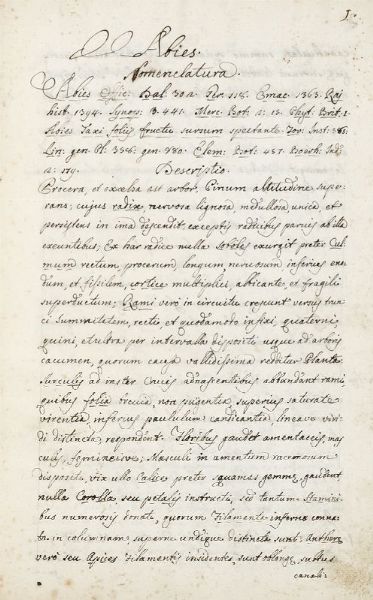 1.
Abies.
Nomenclatura.
Abies Offic: Dal. 30a. Ger. 118. Emac. 1363. Raj
hist. 1394. Synop: 3. 441. Merc: Bot: 1: 15. Phyt. Brit. 1.
Abies Taxi folio fructu sursum spectante. Tour. Inst: 585.
Lin: gen. Pl. gen. 980. Elem: Bot: 457. Boerh: Ind.
2: 179.
Descriptio.
Procera, et excelsa est arbor, Pinum altitudine supe-
rans; cujus radix nervosa lignosa, medullosa unica, et
persistens in ima descendit exceptis radicibus parvis ab illa
exeuntibus; Ex hac radice nulla soboles exurgit preter Cul-
mum rectum, procerum, longum nervosum inferius
et fissilem, cortice multiplici, albicante, et fragili
superductum; Rami vero in circuitu crescunt versus trun-
ci Summitatem, recti et quodamodo infixi, quaterni
quini, et ultra per intervalla dispositi usque ad arboris
cacumen, quorum causa validissima redditur Planta.
Surculis ad instar Crucis adnascentibus abbundant rami
quibus folia brevia non pugentia, superius saturate
virentia, inferius paululum candicantia, lineave viri-
di distincta, respondent. Floribus gaudet amentaceis, mas-
culis, feminisve: Masculi in amentum racemosum
dispositi, vix ullo Calice preter squamas gemme gaudent
nulla Corolla seu petalis instructi, sed tantum Stamini-
bus numerosis donati, quorum Filamenta inferne conna-
ta in columnam, superne undique distincta sunt: Anthere
vero seu Apices Filamentis insidentes, sunt oblonge, subtus
canali-